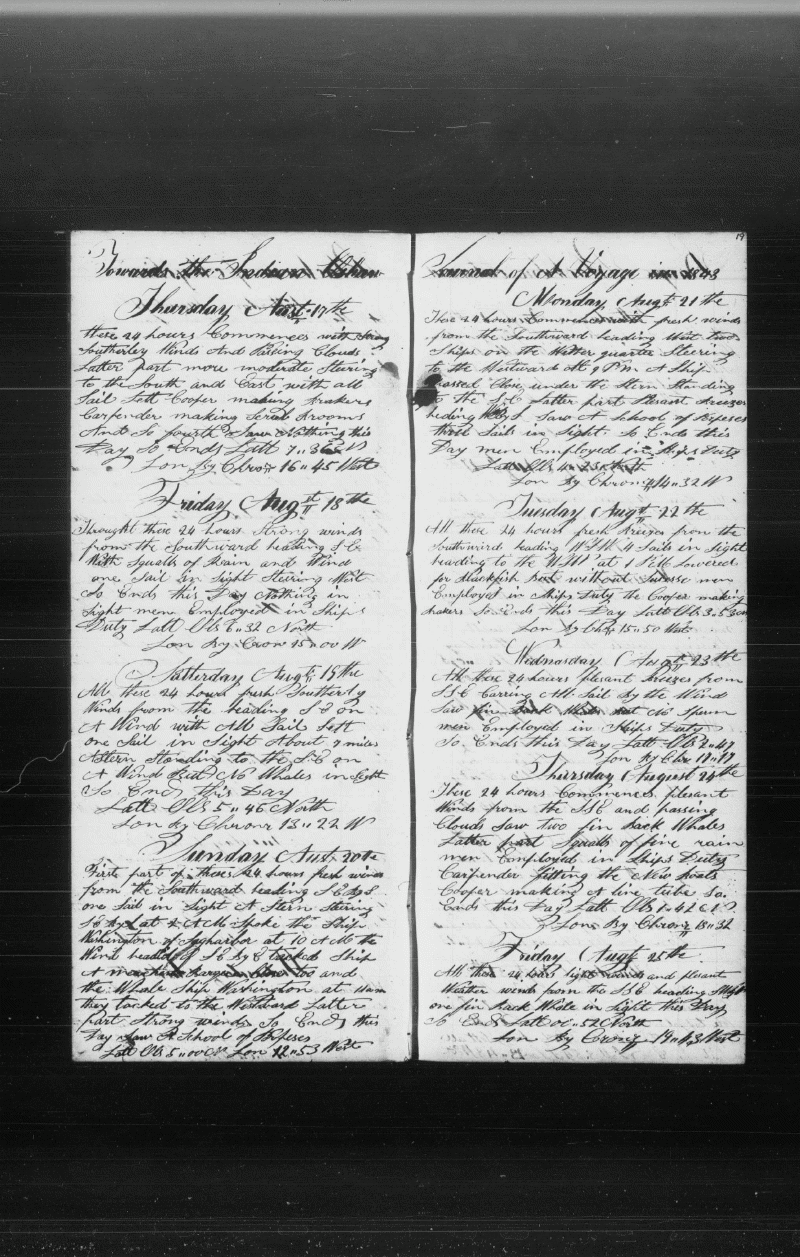 Towards the Indian Oshan
Thursday Augst 17th
these 24 hours Commences with Strong
Southerley Winds And Passing Clouds
Latter part more moderate Stearing
to the South and East with all
Sail Sett Cooper making Brakers
Carpender making Scrub Brooms
And So fourth Saw Nothing this
Day So Ends Latt 7"36
Lon By Chronr 16"45 West
Friday Augst 18th
Throught these 24 hours Strong winds
from the Southward heading S E
With Squalls of Rain and Wind
one Sail in Sight Stearing West
So Ends this Day Nothing in
Sight men Employed in Ships
Duty Latt Obs 6"32 North
Lon By Cronr 15"00 W
Satterday Augt 19the
All these 24 hours fresh Southerly
Winds from the heading S E on
A Wind with All Sail Sett
one Sail in Sight About 7 miles
Astern Standing to the S E on
A Wind But No Whales in Sight
So Ends this Day
Latt Obs 5"46 North
Lon By Chronr 13"22 W
Sunday Augt 20th
Firste part of these 24 hours fresh winds
from the Southward heading S E by S
one Sail in Sight A Stern Stearing
S E by S at 8 A M Spoke the Ship
Washington of Sagharbor at 10 A M the
Wind headed S E by E tacked Ship
A and
the Whale Ship Washington at 11am
they tacked to the Westward Latter
part Strong winds So Ends this
Day Saw A School of
Latt Obs 5"00 N Lon 12"53 West
19
Journal of A Voyage in 1843
Monday Augt 21th
These 24 hours Commences with fresh winds
from the Southward heading West two
Ships on the Wether quarter Steering
to the Westward At 9 P M A Ship
passed Close under the Stern Standing
to the S E Latter part Plesant Breezes
heding W by S Saw A School of
three Sails in Sight So Ends this
Day men Employed in Ships Duty
Latt Obs 4"23 North
Lon By Chronr 14"32 W
Tuesday Augt 22th
All these 24 hours fresh Breezes from the
Southward heading W S W 4 Sails in Sight
heading to the W S W at 1 P M Lowered
for Blackfish But without Sucesse men
Employed in Ships Duty the Cooper making
Brakers So Ends this Day Latt Obs 3"53
Lon By Chr 15"50 West
Wednesday Augt 23th
All these 24 hours plesant Breezes from
S S E Carring All Sail By the Wind
Saw fin Back Whales But No Sperm
men Employed in Ships Duty
So Ends this Day Latt Obs 2"47
Lon By Chr 17"17
Thursday August 24th
These 24 hours Commences plesant
Winds from the S S E and passing
Clouds Saw two fin back Whales
Latter part Squalls of fine rain
men Employed in Ships Duty
Carpender fitting the New boats
Cooper making A line tube So
Ends this Day Latt Obs 1"42
Lon By Chronr 18"32
Friday Augt 25th
All these 24 hours light winds and plesant
Weather winds from the S S E heading S W
one fin back Whale in Sight this Day
So Ends Latt 00"52 North
Lon By Cronr 19"43 West